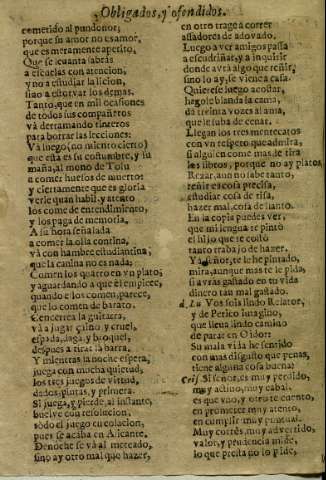 Obligados, y ofendidos.
cometido al pundonor;
porque su amor no es amor,
que es meramente apetito.
Que se leuanta sabràs
a escuelas con atencion,
y no a estudiar la licion,
sino a estoruar los demas.
Tanto, que en mil ocasiones
de todos sus compañeros
và derramando tinteros
para borrar las lecciones:
Và luego, (no miento cierto)
que esta es su costumbre, y su
maña, al mono de
a comer huesos de muertos
y ciertamente que es gloria
verle quan habil, y atento
los come de entendimiento,
y los paga de memoria.
A su hora señalada
a comer la olla continua,
và con hambre estudiantina,
que la canina no es nada:
Comen los quatro en vn plato;
y aguardando a que el empiece,
quando el los comen, parece,
que lo comen de barato.
Cencerrea la guitarra,
và a jugar y cruel,
espada, daga, y broquel,
despues a tirar la barra,
Y mientras la noche espera,
juega con mucha quietud,
los tres juegos de virtud,
dados, pintas, y primera.
Si juega, y pierde, al instante,
buelue con resolucion,
todo el juego en colacion,
pues se acaba en Alicante.
De noche se và al mercado,
sino ay otro mal que hazer,
en otro trage à correr
assadores de adovado.
Luego a ver amigos passa
a escudriñar, y a inquirir
donde avrà algo que reñir,
sino lo ay, se viene a casa.
Quierese luego acostar,
hagole blanda la cama,
dà treinta vozes al ama,
que le suba de cenar.
Llegan los tres mentecatos
con vn respeto que admira,
si alguien come mas le tira
los libros, porque no ay platos
Rezar, aun no sabe tanto,
reñir es cosa precisa,
estudiar cosa de risa,
hazer mal, cosa de llanto.
En la copia puedes ver,
que mi lengua te pintò
el hijo que te costò
tanto trabajo de hazer.
Ya señor, te le he pintado,
mira, aunque mas te le pida,
si avràs gastado en tu vida
dinero tan mal gastado.
Vos sois lindo Relator,
y de Perico lutagino,
que lleua lindo camino
de parar en Oidor:
Su mala vida he sentido
con mas disgusto que penas,
tiene alguna cosa buena?
Cris. Si señor, es muy perdido,
muy ladino, muy cabal,
es que vno, y otro te cuento,
en prometer muy atento,
en cumplir muy puntual.
Muy cortès, muy advertido,
valor, y prudencia mide,
lo que presta no lo pide,